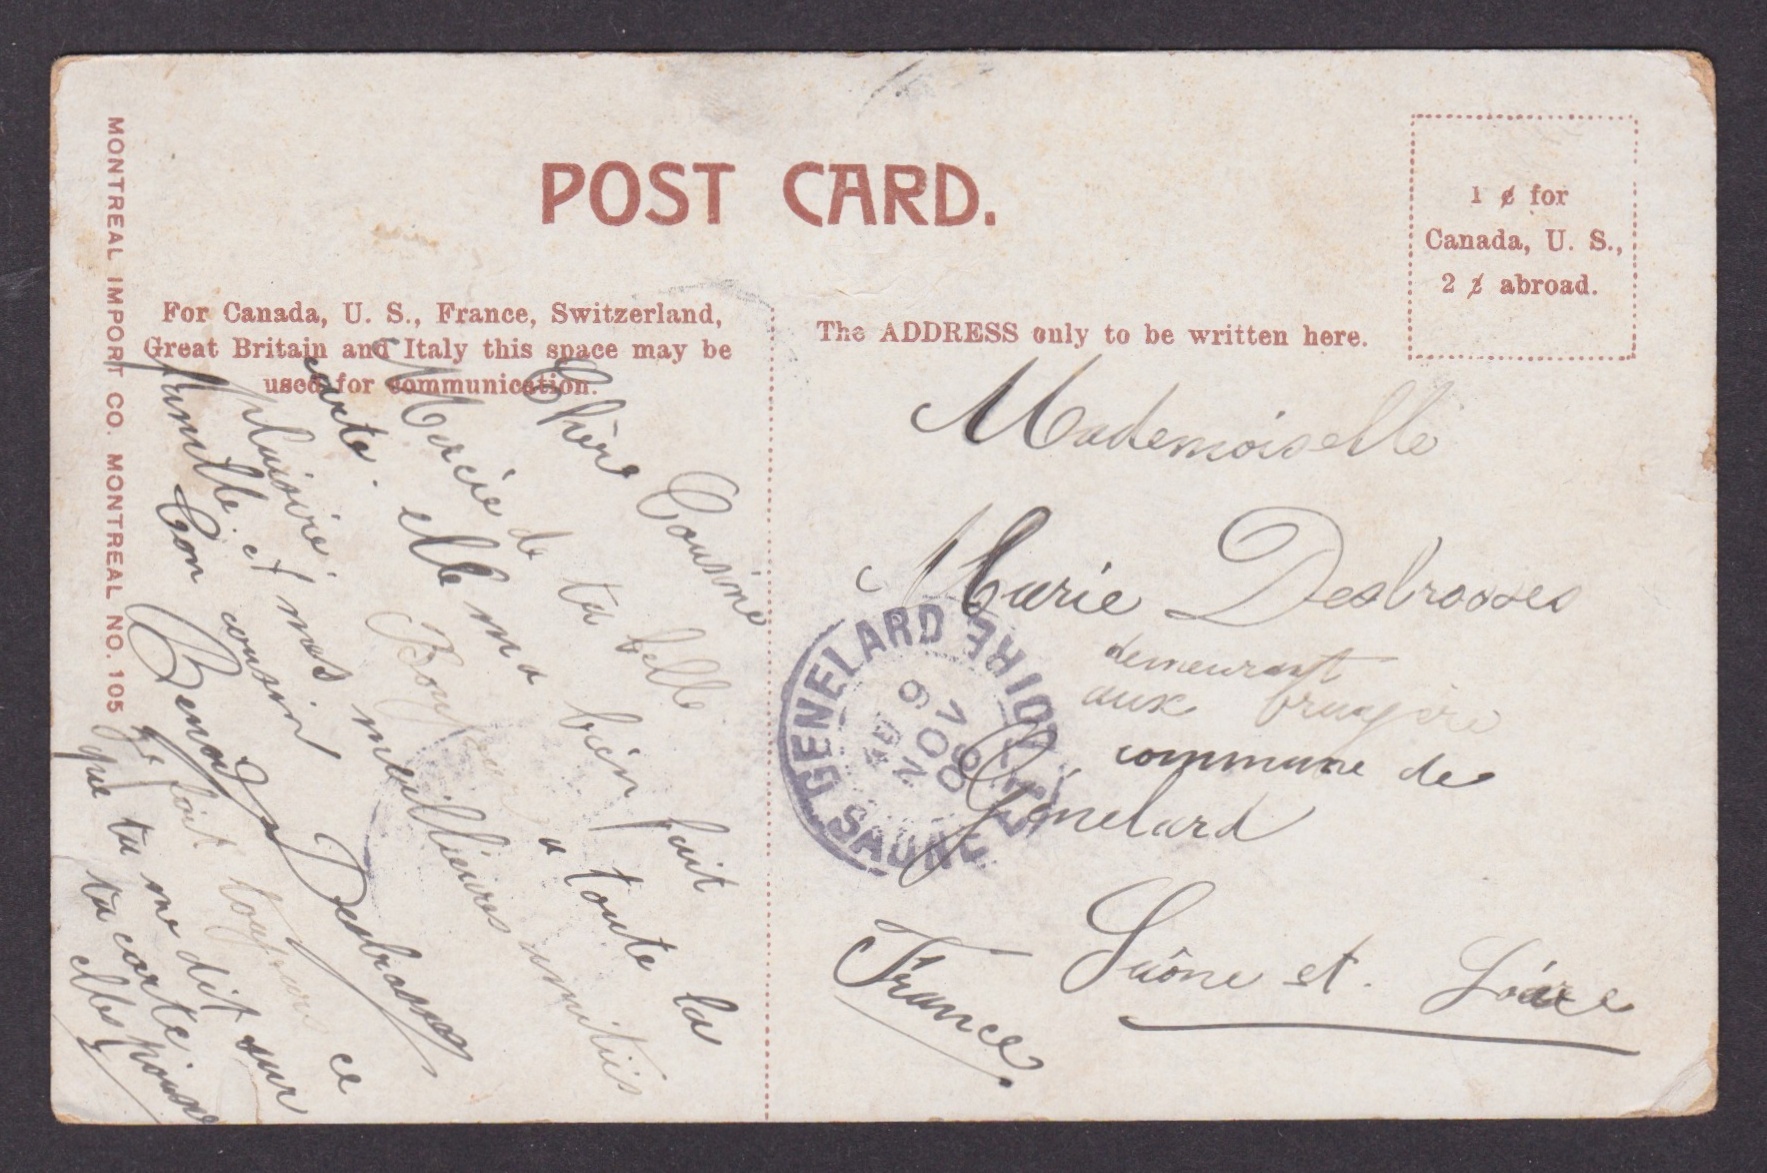 POST CARD.
1 ¢ for
Canada, U. S.,
2 ¢ abroad.
MONTREAL IMPORT CO. MONTREAL NO. 105
For Canada, U. S., France, Switzerland,
Great Britain and Italy this space may be
used for communication.
The ADDRESS only to be written here.
Chère Cousine
Mercie de ta belle
carte. elle ma bien fait
plaisire Bonjour a toute la
famille. et mes meillieures amitiés
Ton cousin
Benoit Desbrosses
Je fait toujours ce
que tu me dit sur
ta carte
elles
Mademoiselle
Marie Desbrosses
demeurant
aux bruyère
commune de
Génelard
Saône et. Loire
France
GENELARD
SAONE